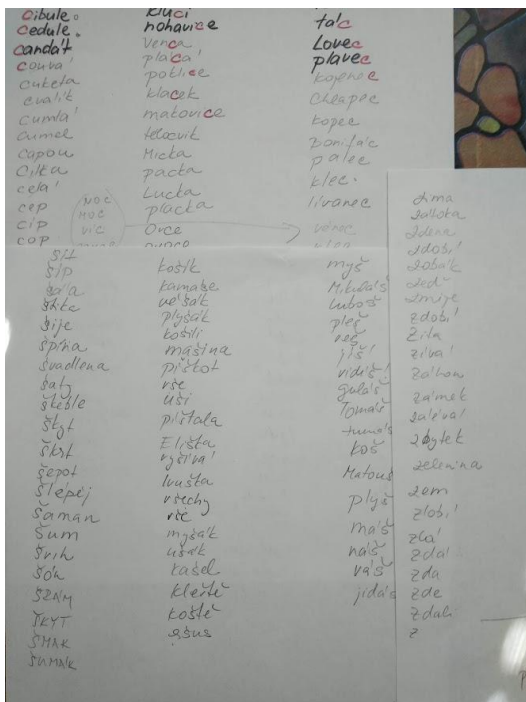 cibule.
cedule.
candát
couvá
cuketa
cvalík
cumlá
cumel
capou
Cilka
celá
cep
cíp
cop
kluci
nohavice
Venca
plácá
poklice
klacek
makovice
tělocvik
Micka
packa
Lucka
placka
Ovce
tác
Lovec
plavec
kojenec
Chlapec
kopec
Bonifác
palec
klec.
lívanec
vánoc
NOC
MOC
VÍC
šít
šíp
šála
šiška
šije
špína
švadlena
šaty
škeble
škyt
škrt
šepot
šlépěj
šaman
šum
švih
šón
ŠZÁM
ŠKYT
ŠMAK
ŠUMÁK
košík
kamaše
věšák
plyšák
košili
mašina
piškot
vše
uši
píšťala
Eliška
vyšívá
Ivuška
všechy
vše
myšák
ušák
kašel
kleště
koště
myš
Mikuláš
Luboš
pleš
veš
jíš
vidíš!
guláš
Tomáš
koš
Matouš
plyš
máš
náš
váš
jidáš
zima
záloka
zdena
zdobí
zobák
zeď
zmije
zdobí
Zita
zívá!
záhon
zámek
zalévá!
zbytek
zelenina
zem
zlobí
zlá
zdá
zda
zde
zdali
z